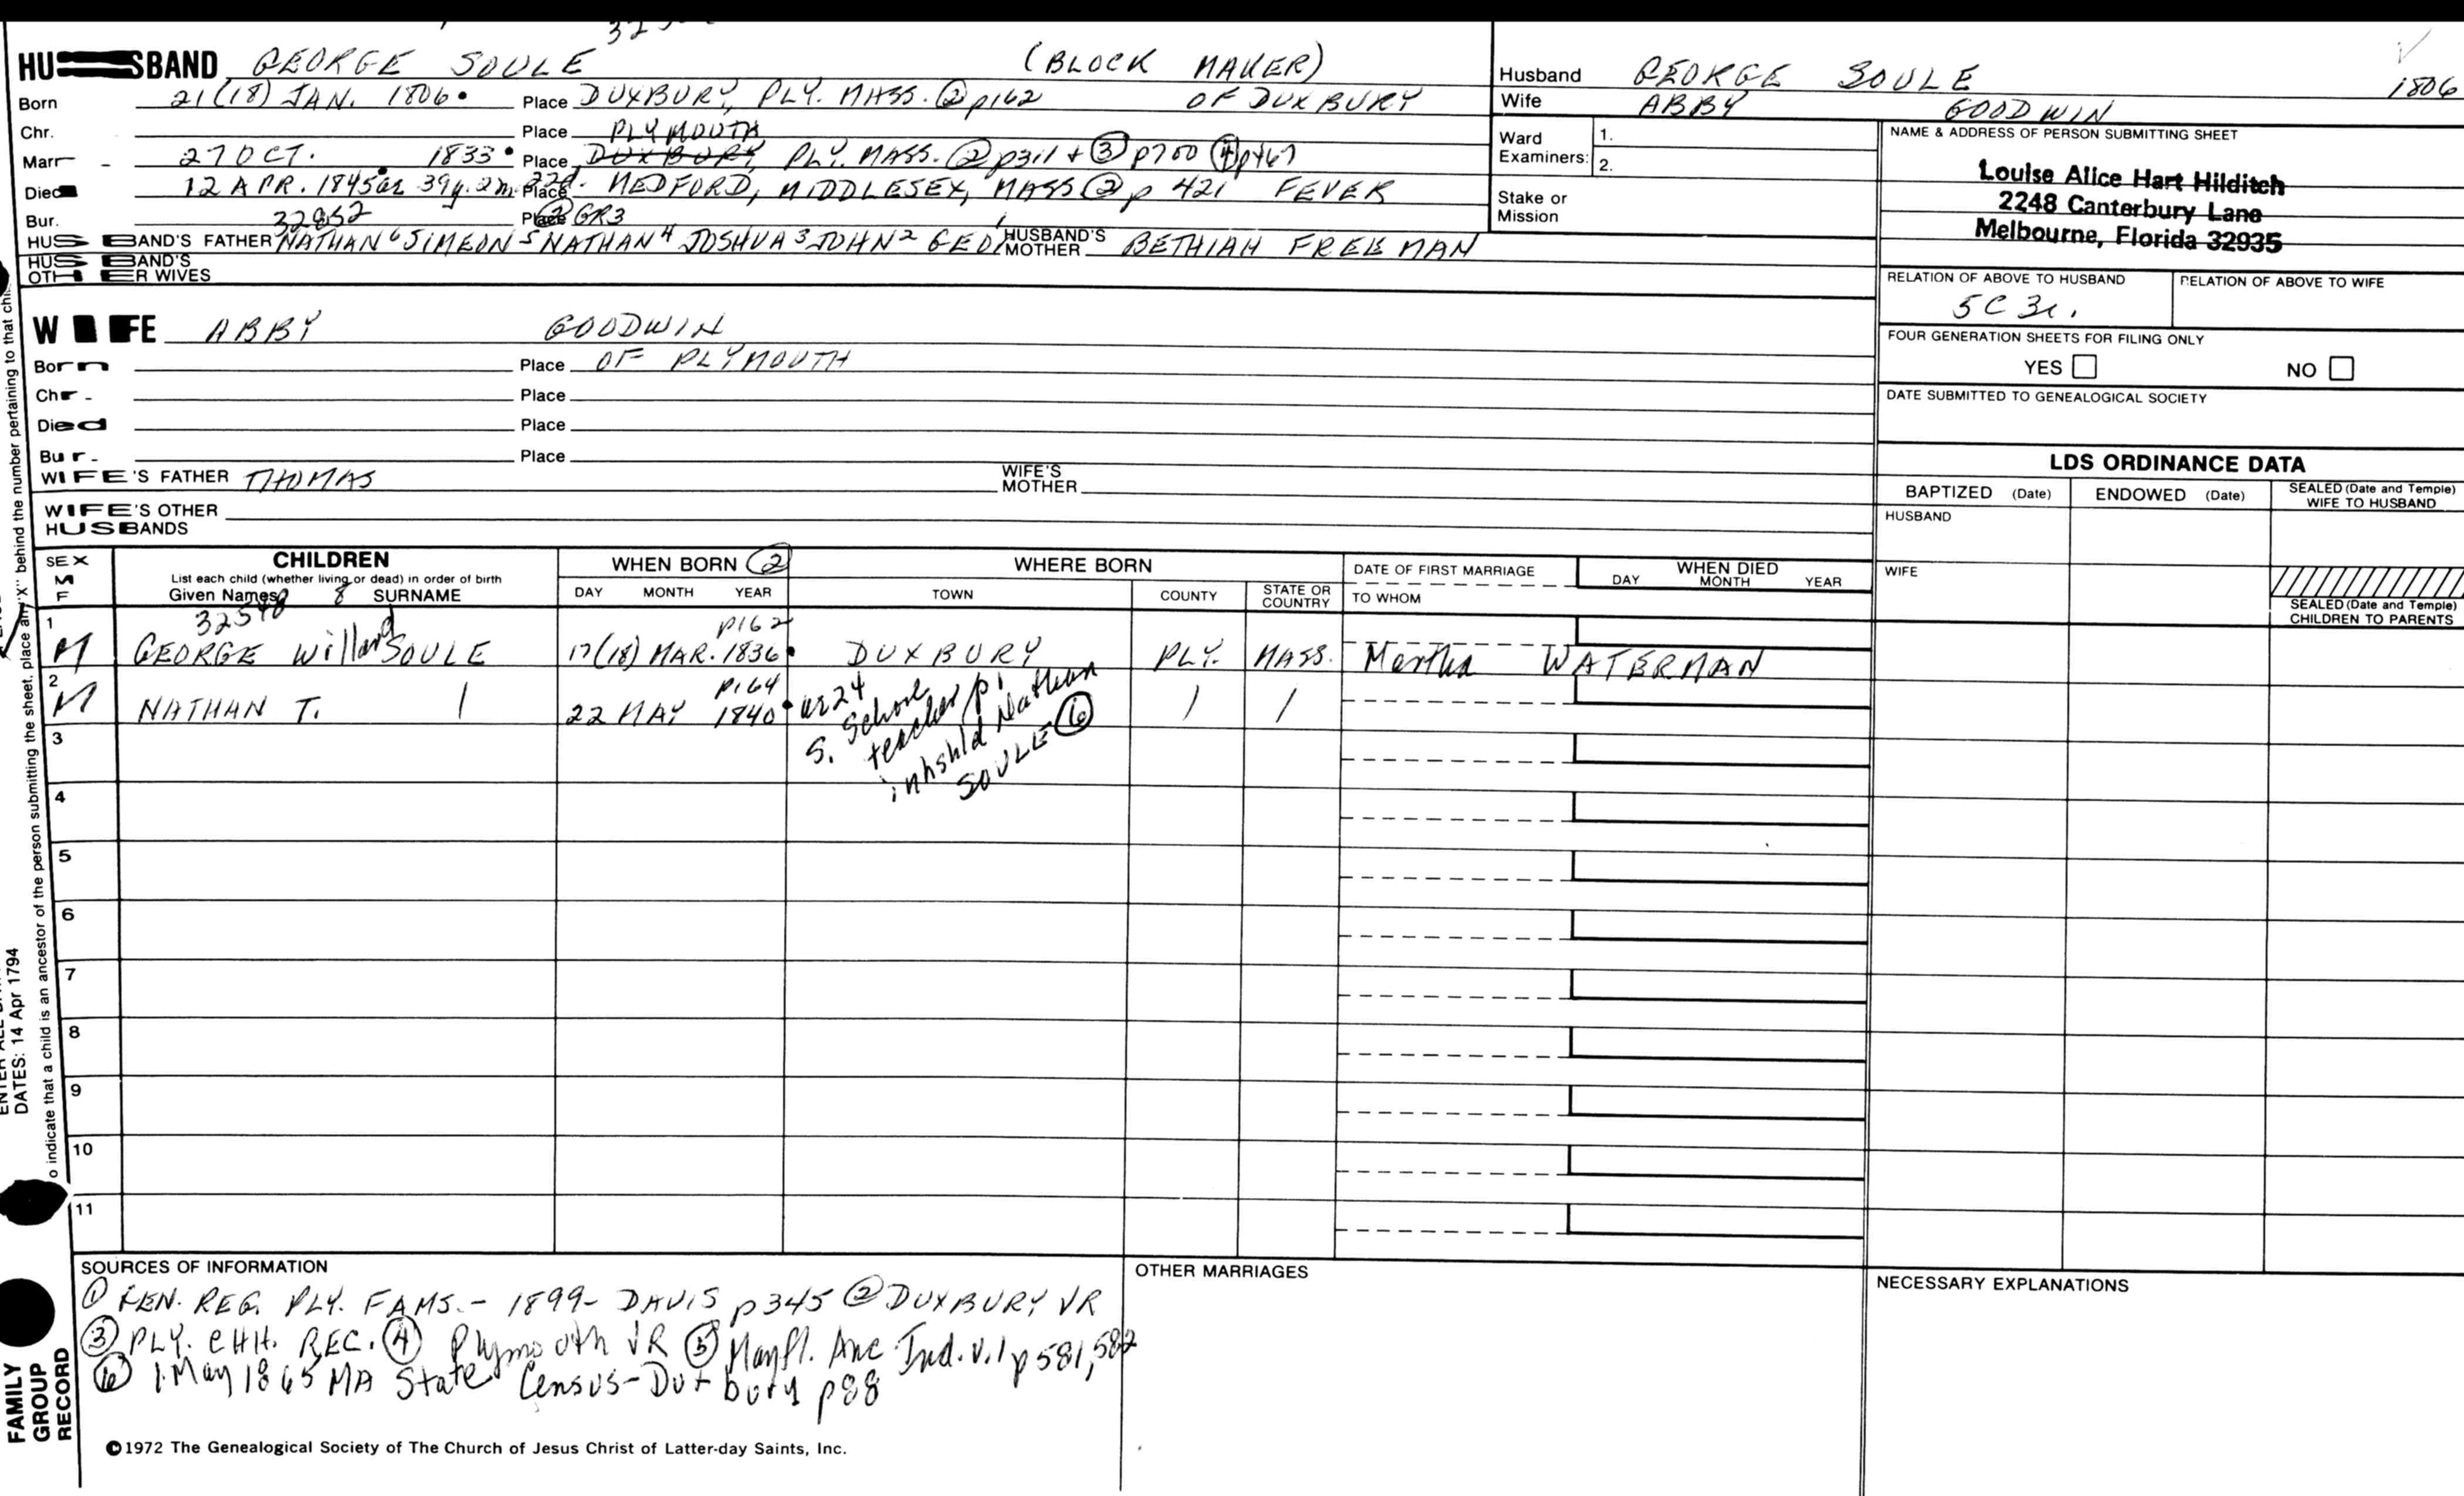 HUSBAND GEORGE SOULE (BLOCK MAKER)
Born 21(18) JAN. 1806 Place DUXBURY, PLY. MASS. ② p162 OF DUXBURY
Chr. Place PLYMOUTH
Marr 27 OCT. 1833 Place DUXBURY, PLY. MASS. ② p311 + ③ p700 ④ p467
Died 12 APR. 1845 ae 39y. 2m. 22d. Place MEDFORD, MIDDLESEX, MASS ② p 421 FEVER
Bur. Place ② GR3
HUSBAND'S FATHER NATHAN⁶ SIMEON⁵ NATHAN⁴ JOSHUA³ JOHN² GEO¹ HUSBAND'S MOTHER BETHIAH FREEMAN
HUSBAND'S OTHER WIVES
Husband GEORGE SOULE 1806
Wife ABBY GOODWIN
Ward Examiners: 1.
2.
Stake or Mission
NAME & ADDRESS OF PERSON SUBMITTING SHEET
Louise Alice Hart Hilditch
2248 Canterbury Lane
Melbourne, Florida 32935
RELATION OF ABOVE TO HUSBAND RELATION OF ABOVE TO WIFE
5C 3r.
FOUR GENERATION SHEETS FOR FILING ONLY
YES NO
DATE SUBMITTED TO GENEALOGICAL SOCIETY
WIFE ABBY GOODWIN
Born Place OF PLYMOUTH
Chr. Place
Died Place
Bur. Place
WIFE'S FATHER THOMAS WIFE'S MOTHER
WIFE'S OTHER HUSBANDS
LDS ORDINANCE DATA
BAPTIZED (Date) ENDOWED (Date) SEALED (Date and Temple) WIFE TO HUSBAND
HUSBAND
WIFE
SEALED (Date and Temple) CHILDREN TO PARENTS
SEX M F CHILDREN WHEN BORN ② WHERE BORN DATE OF FIRST MARRIAGE WHEN DIED
List each child (whether living or dead) in order of birth
Given Names SURNAME DAY MONTH YEAR TOWN COUNTY STATE OR COUNTRY TO WHOM DAY MONTH YEAR
1 p162
M GEORGE Willard SOULE 17(18) MAR. 1836 DUXBURY PLY. MASS. Martha WATERMAN
2 p164
M NATHAN T. / 22 MAY 1840 / /
ae 24
S. School
teacher/p1
in hshld Nathan
SOULE ⑥
3
4
5
6
7
8
9
10
11
SOURCES OF INFORMATION
① GEN. REG. PLY. FAMS. - 1899 - DAVIS p345 ② DUXBURY VR
③ PLY. CHH. REC. ④ Plymouth VR ⑤ Mayfl. Anc Ind. v.1 p 581, 582
⑥ 1 May 1865 MA State Census - Duxbury p88
OTHER MARRIAGES
NECESSARY EXPLANATIONS
©1972 The Genealogical Society of The Church of Jesus Christ of Latter-day Saints, Inc.
FAMILY
GROUP
RECORD
DATES: 14 Apr 1794
o indicate that a child is an ancestor of the person submitting the sheet, place an "X" behind the number pertaining to that